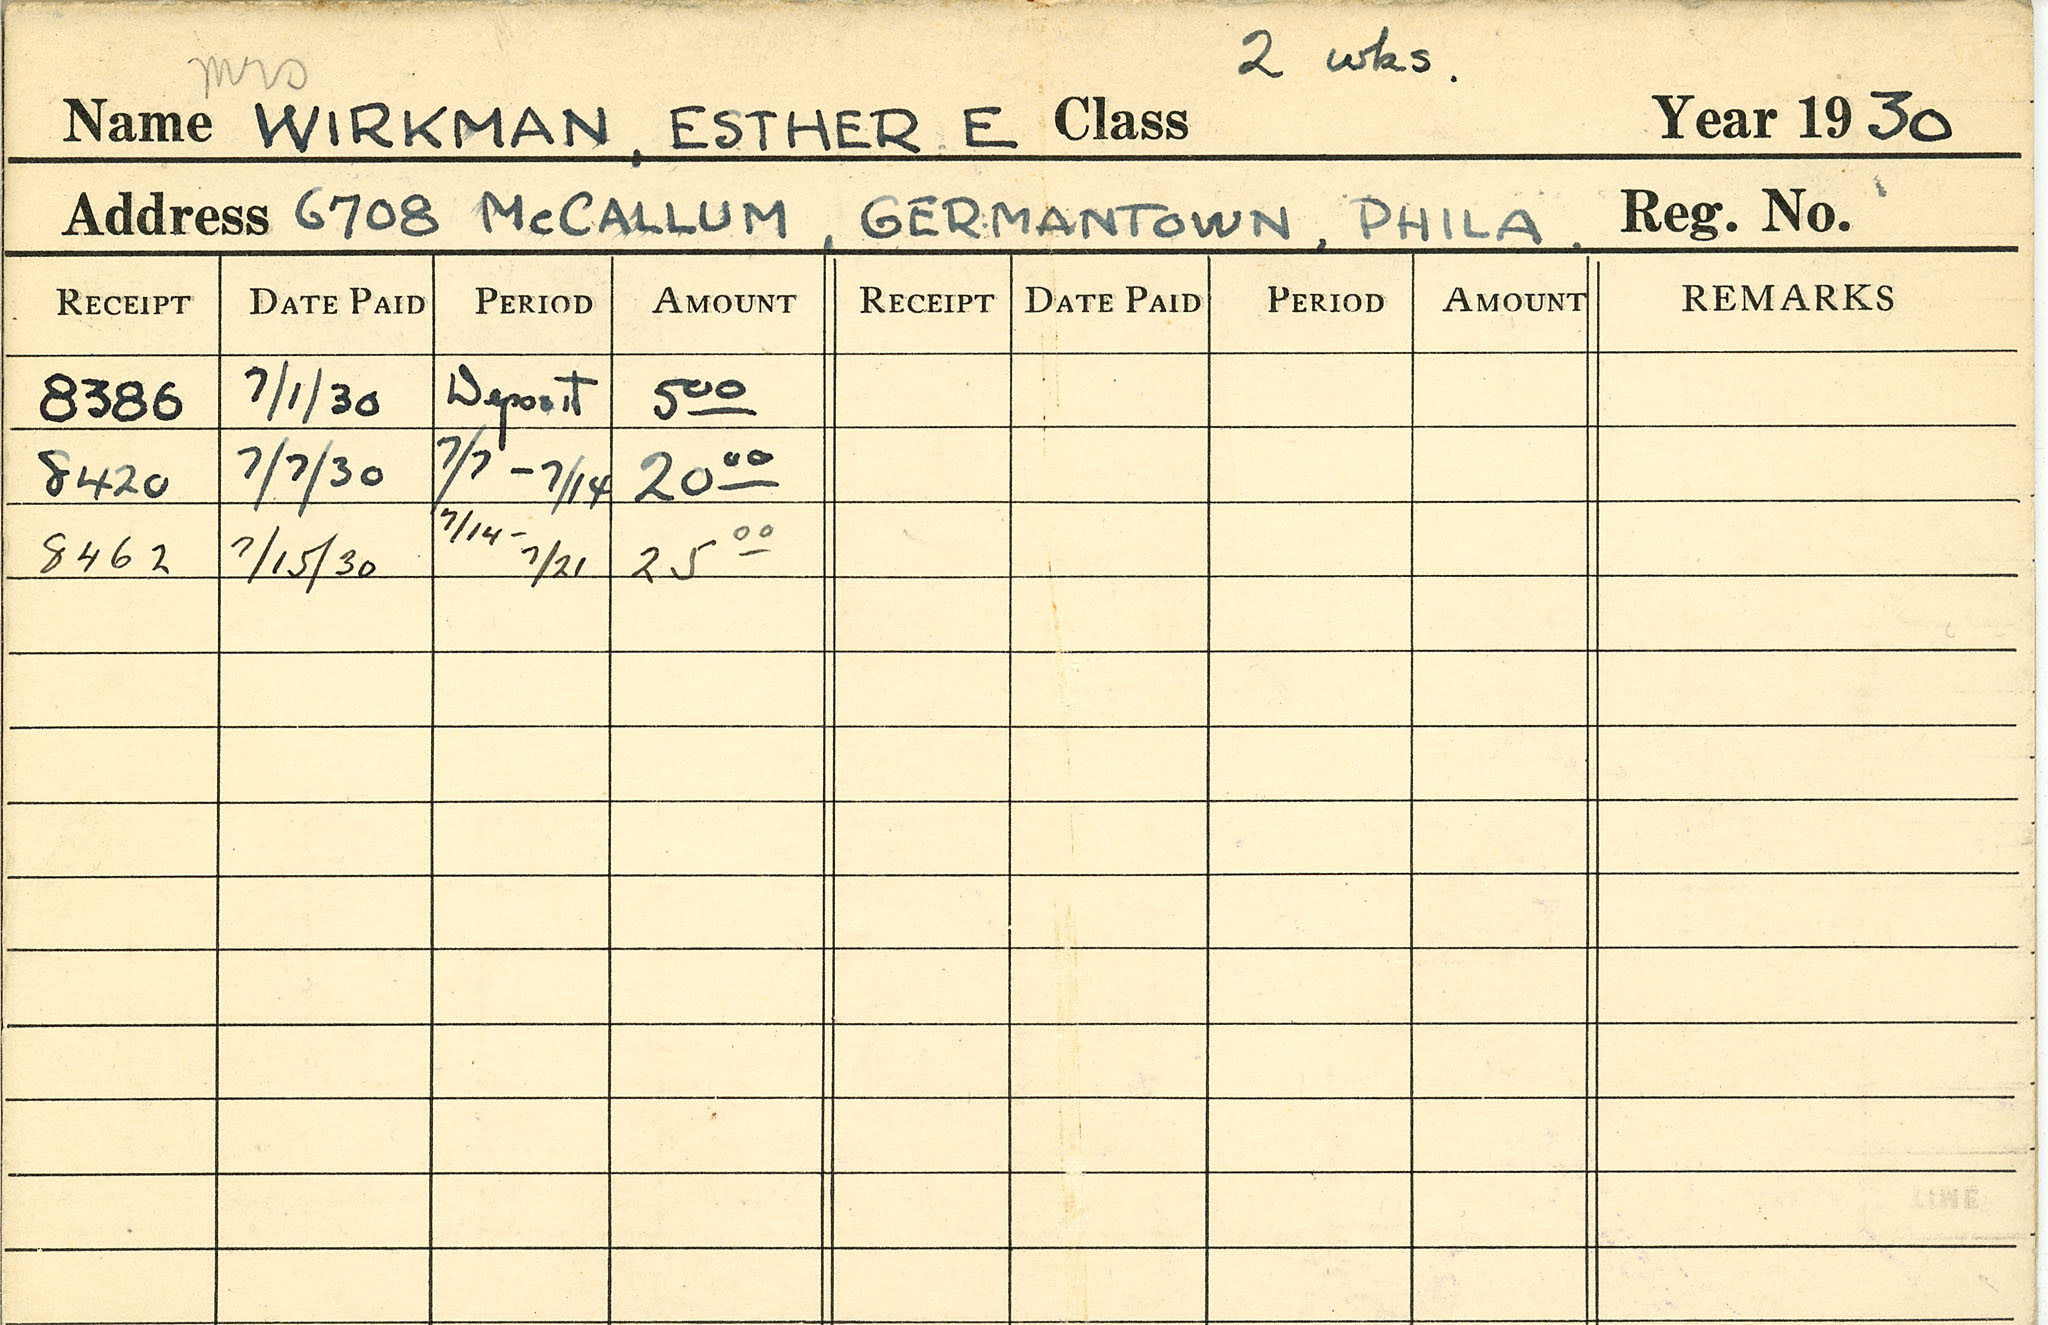 mrs
2 wks.
Name WIRKMAN, ESTHER E Class Year 1930
Address 6708 McCALLUM, GERMANTOWN, PHILA. Reg. No.
RECEIPT DATE PAID PERIOD AMOUNT RECEIPT DATE PAID PERIOD AMOUNT REMARKS
8386 7/1/30 Deposit 5 00
8420 7/7/30 7/7 - 7/14 20 00
8462 7/15/30 7/14 - 7/21 25 00